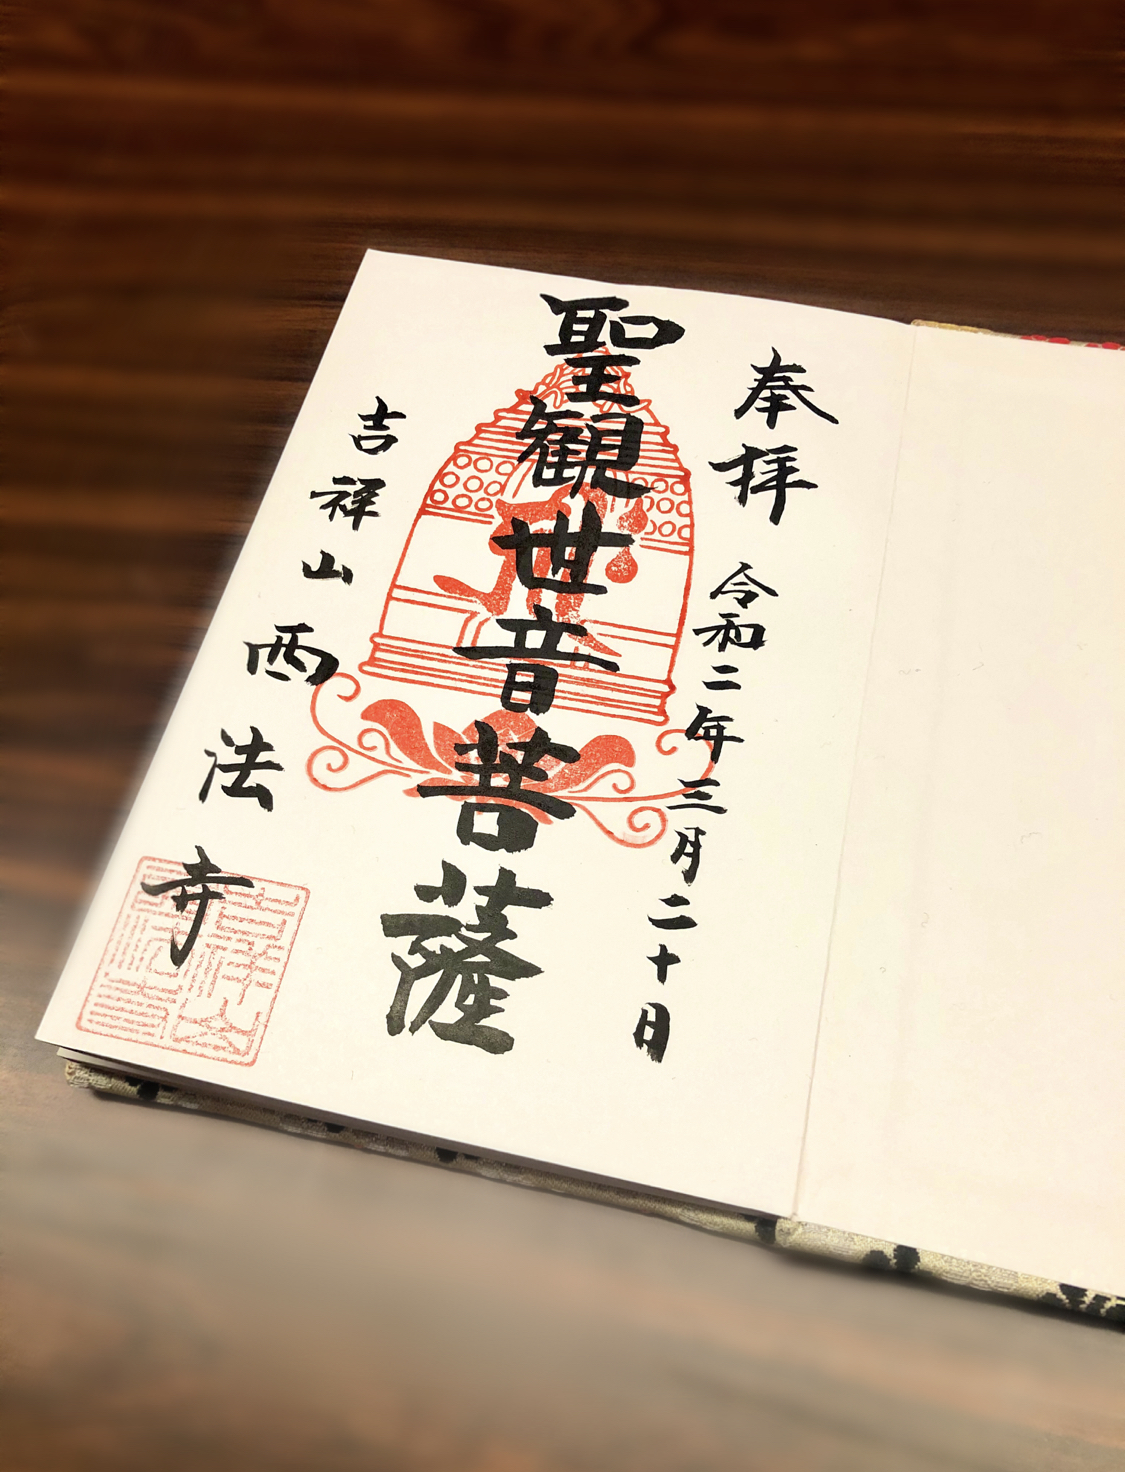 奉拝
令和二年三月二十日
聖観世音菩薩
吉祥山西法寺